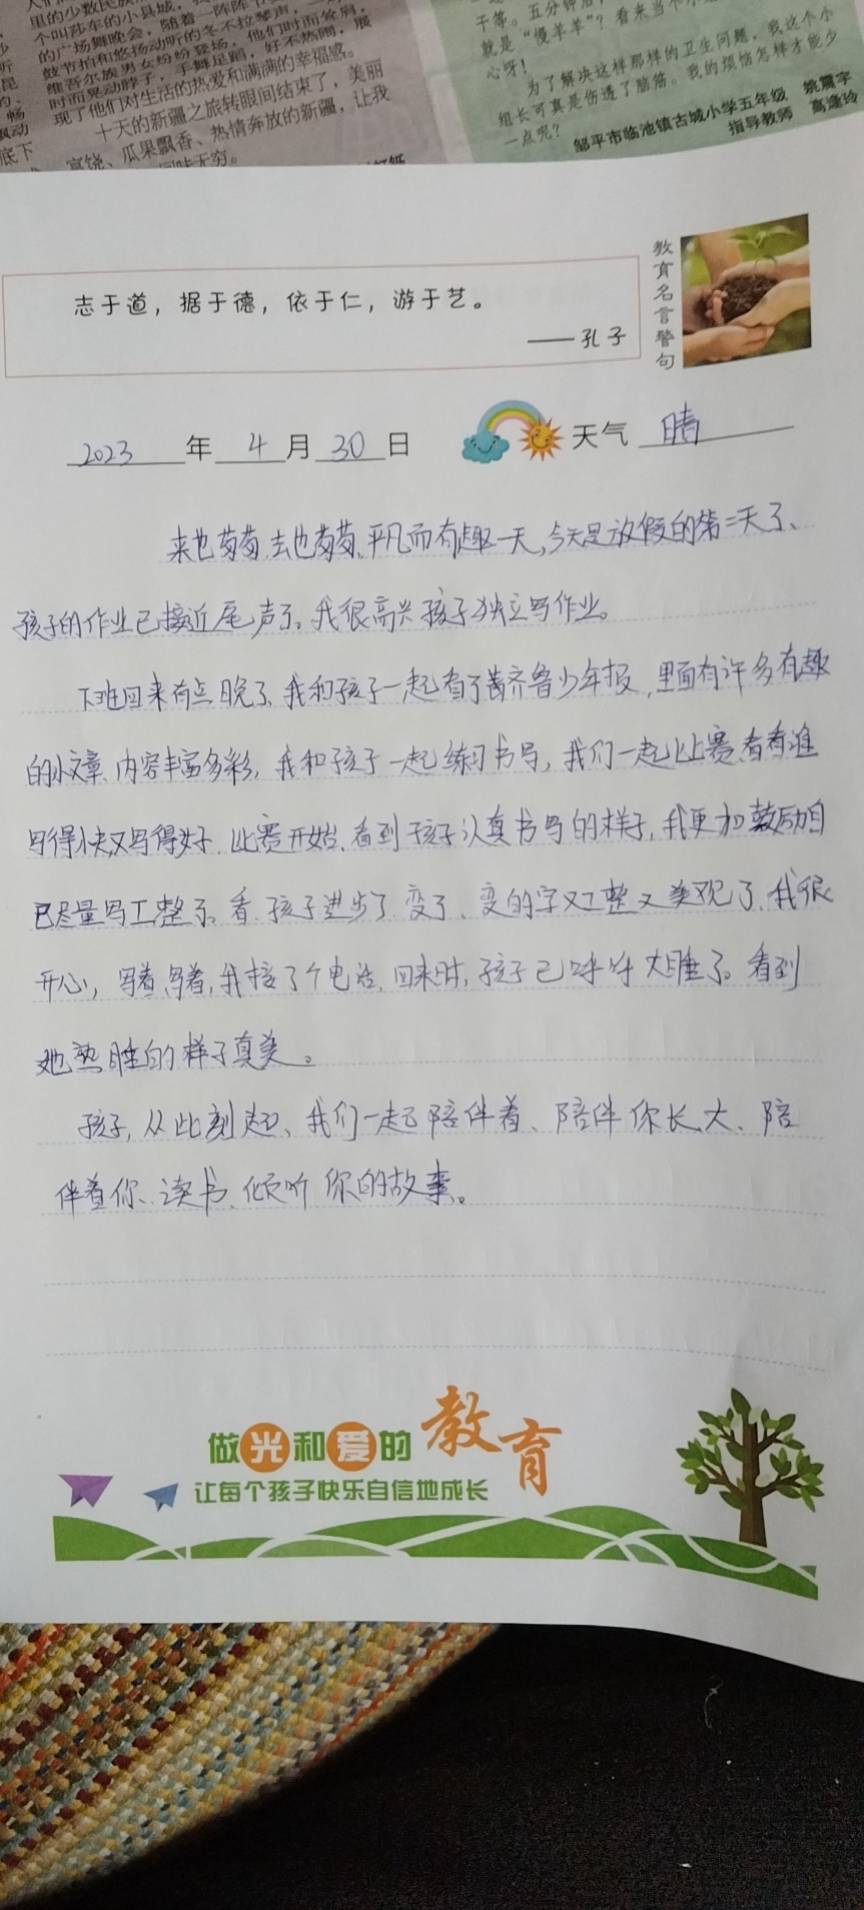 个叫莎车的小县城，
的广场舞晚会，随着一阵阵
鼓节拍和悠扬动听的冬不拉琴声，
维吾尔族男女纷纷登场，他们时而耸肩，
时而晃动脖子，手舞足蹈，好不热闹，展
现了他们对生活的热爱和满满的幸福感。
十天的新疆之旅转眼间结束了，美丽
富饶、瓜果飘香、热情奔放的新疆，让我
回味无穷。
干等。五分钟后
就是“慢羊羊”？看来当个小
心呀！
为了解决这样那样的卫生问题，我这个小
组长可真是伤透了脑筋。我的烦恼怎样才能少
一点呢？
邹平市临池镇古城小学五年级 姚震宇
指导教师 高逢玲
志于道，据于德，依于仁，游于艺。
——孔子
教育名言警句
2023年4月30日 天气 晴
来也匆匆、去也匆匆、平凡而有趣一天，今天是放假的第二天了、
孩子的作业已接近尾声了。我很高兴孩子独立写作业。
下班回来有点晚了、我和孩子一起看了齐鲁少年报，里面有许多有趣
的小文章、内容丰富多彩，我和孩子一起练习书写，我们一起比赛，看看谁
写得快又写得好，比赛开始，看到孩子认真书写的样子，我更加鼓励自
己尽量写工整了。看、孩子进步了、变了、变的字又工整又美观了、我很
开心，写着、写着，我接了个电话，回来时，孩子已呼呼大睡了。看到
她熟睡的样子真美。
孩子，从此刻起、我们一起陪伴着、陪伴你长大、陪
伴着你、读书、倾听你的故事。
做光和爱的教育
让每个孩子快乐自信地成长